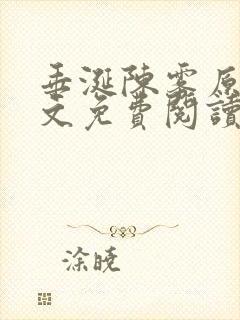 垂涎陳雾原
文免費閱讀
涂曉